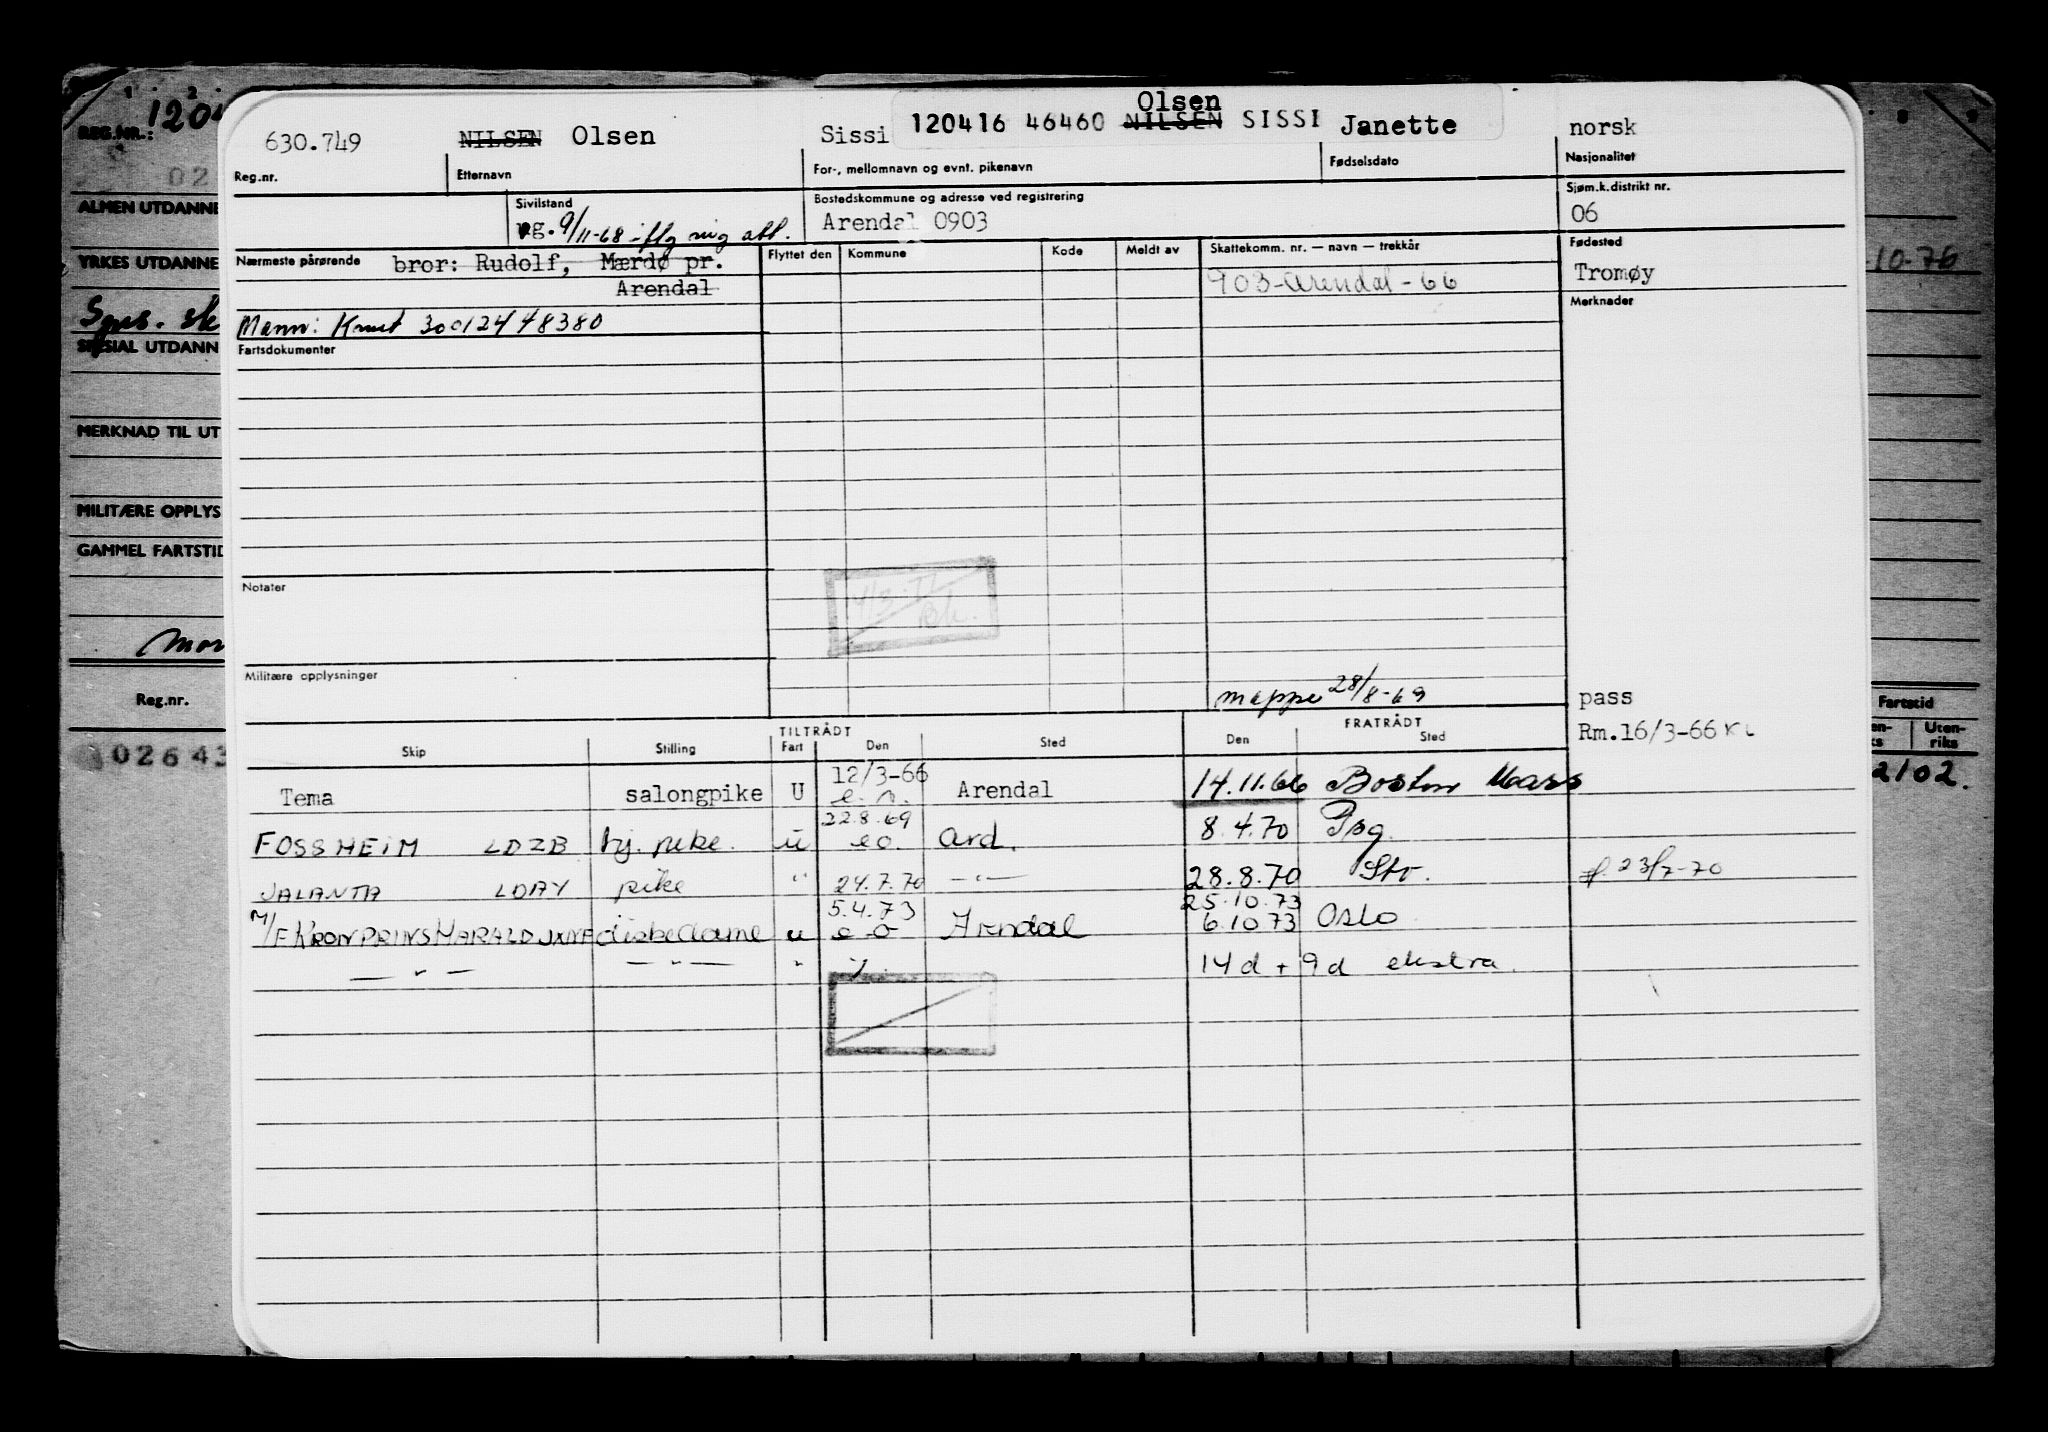 1 2
REG.NR.: 120
02
ALMEN UTDANNE
YRKES UTDANNE
SPESIAL UTDANN
MERKNAD TIL UT
MILITÆRE OPPLYS
GAMMEL FARTSTID
Reg.nr.
02643
Olsen
630.749 NILSEN Olsen Sissi 120416 46460 NILSEN SISSI Janette norsk
Reg.nr. Etternavn For-, mellomnavn og evnt. pikenavn Fødselsdato Nasjonalitet
Sivilstand Bostedskommune og adresse ved registrering Sjøm.k.distrikt nr.
g. 9/11-68 Arendal 0903 06
Nærmeste pårørende bror: Rudolf, Mærdø pr. Flyttet den Kommune Kode Meldt av Skattekomm. nr. — navn — trekkår Fødested
Arendal 903-Arendal-66 Tromøy
Merknader
Mann: Knut 300124 48380
Fartsdokumenter
Notater
Militære opplysninger
mappe 28/8-69
pass
Rm.16/3-66
TILTRÅDT FRATRÅDT
Skip Stilling Fart Den Sted Den Sted
Tema salongpike U 12/3-66 Arendal 14.11.66 Boston Mass
FOSSHEIM LDZB bj. pike. u 22.8.69 e.o. Ard. 8.4.70 Psg.
JALANTA LDAY pike " 24.7.70 —"— 28.8.70 Stv. 23/7-70
M/F KRONPRINS HARALD diskedame u 5.4.73 e o Arendal 25.10.73 6.10 73 Oslo
—"— —"— " 14 d + 9 d ekstra.
8 9
10-76
Fartstid
Uten-
riks
2102.